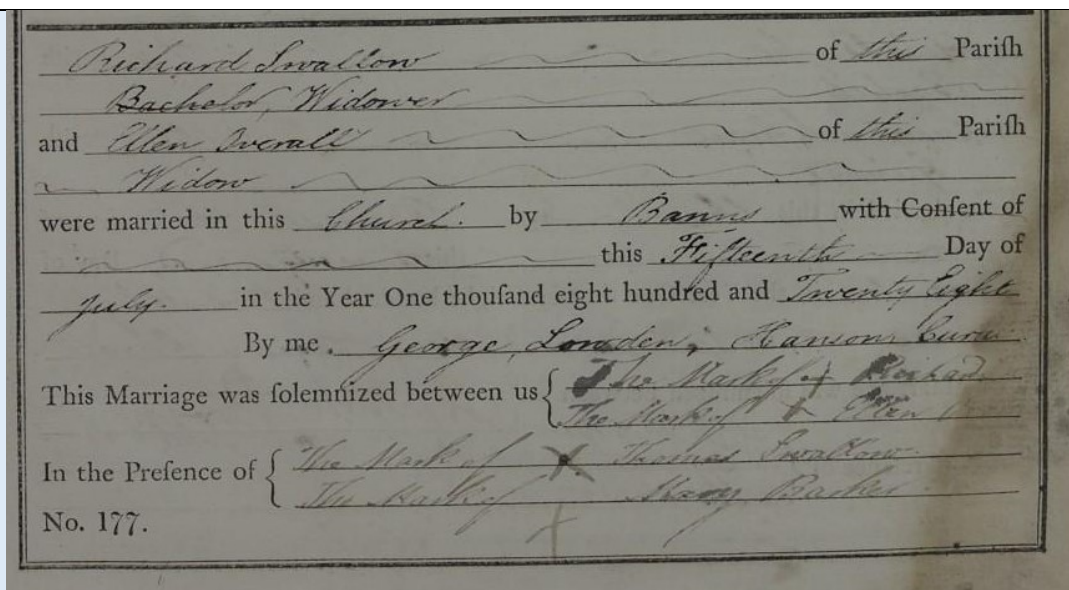 Richard Swallow of this Pariſh
Bachelor, Widower
and Ellen Overall of this Pariſh
Widow
were married in this Church. by Banns with Conſent of
this Fifteenth Day of
July. in the Year One thouſand eight hundred and Twenty Eight
By me. George, Lowden, Hanson,
This Marriage was ſolemnized between us { The Mark of + Richard
The Mark of + Ellen
In the Preſence of { The Mark of X Thomas Swallow.
The Mark of + Mary Barker
No. 177.